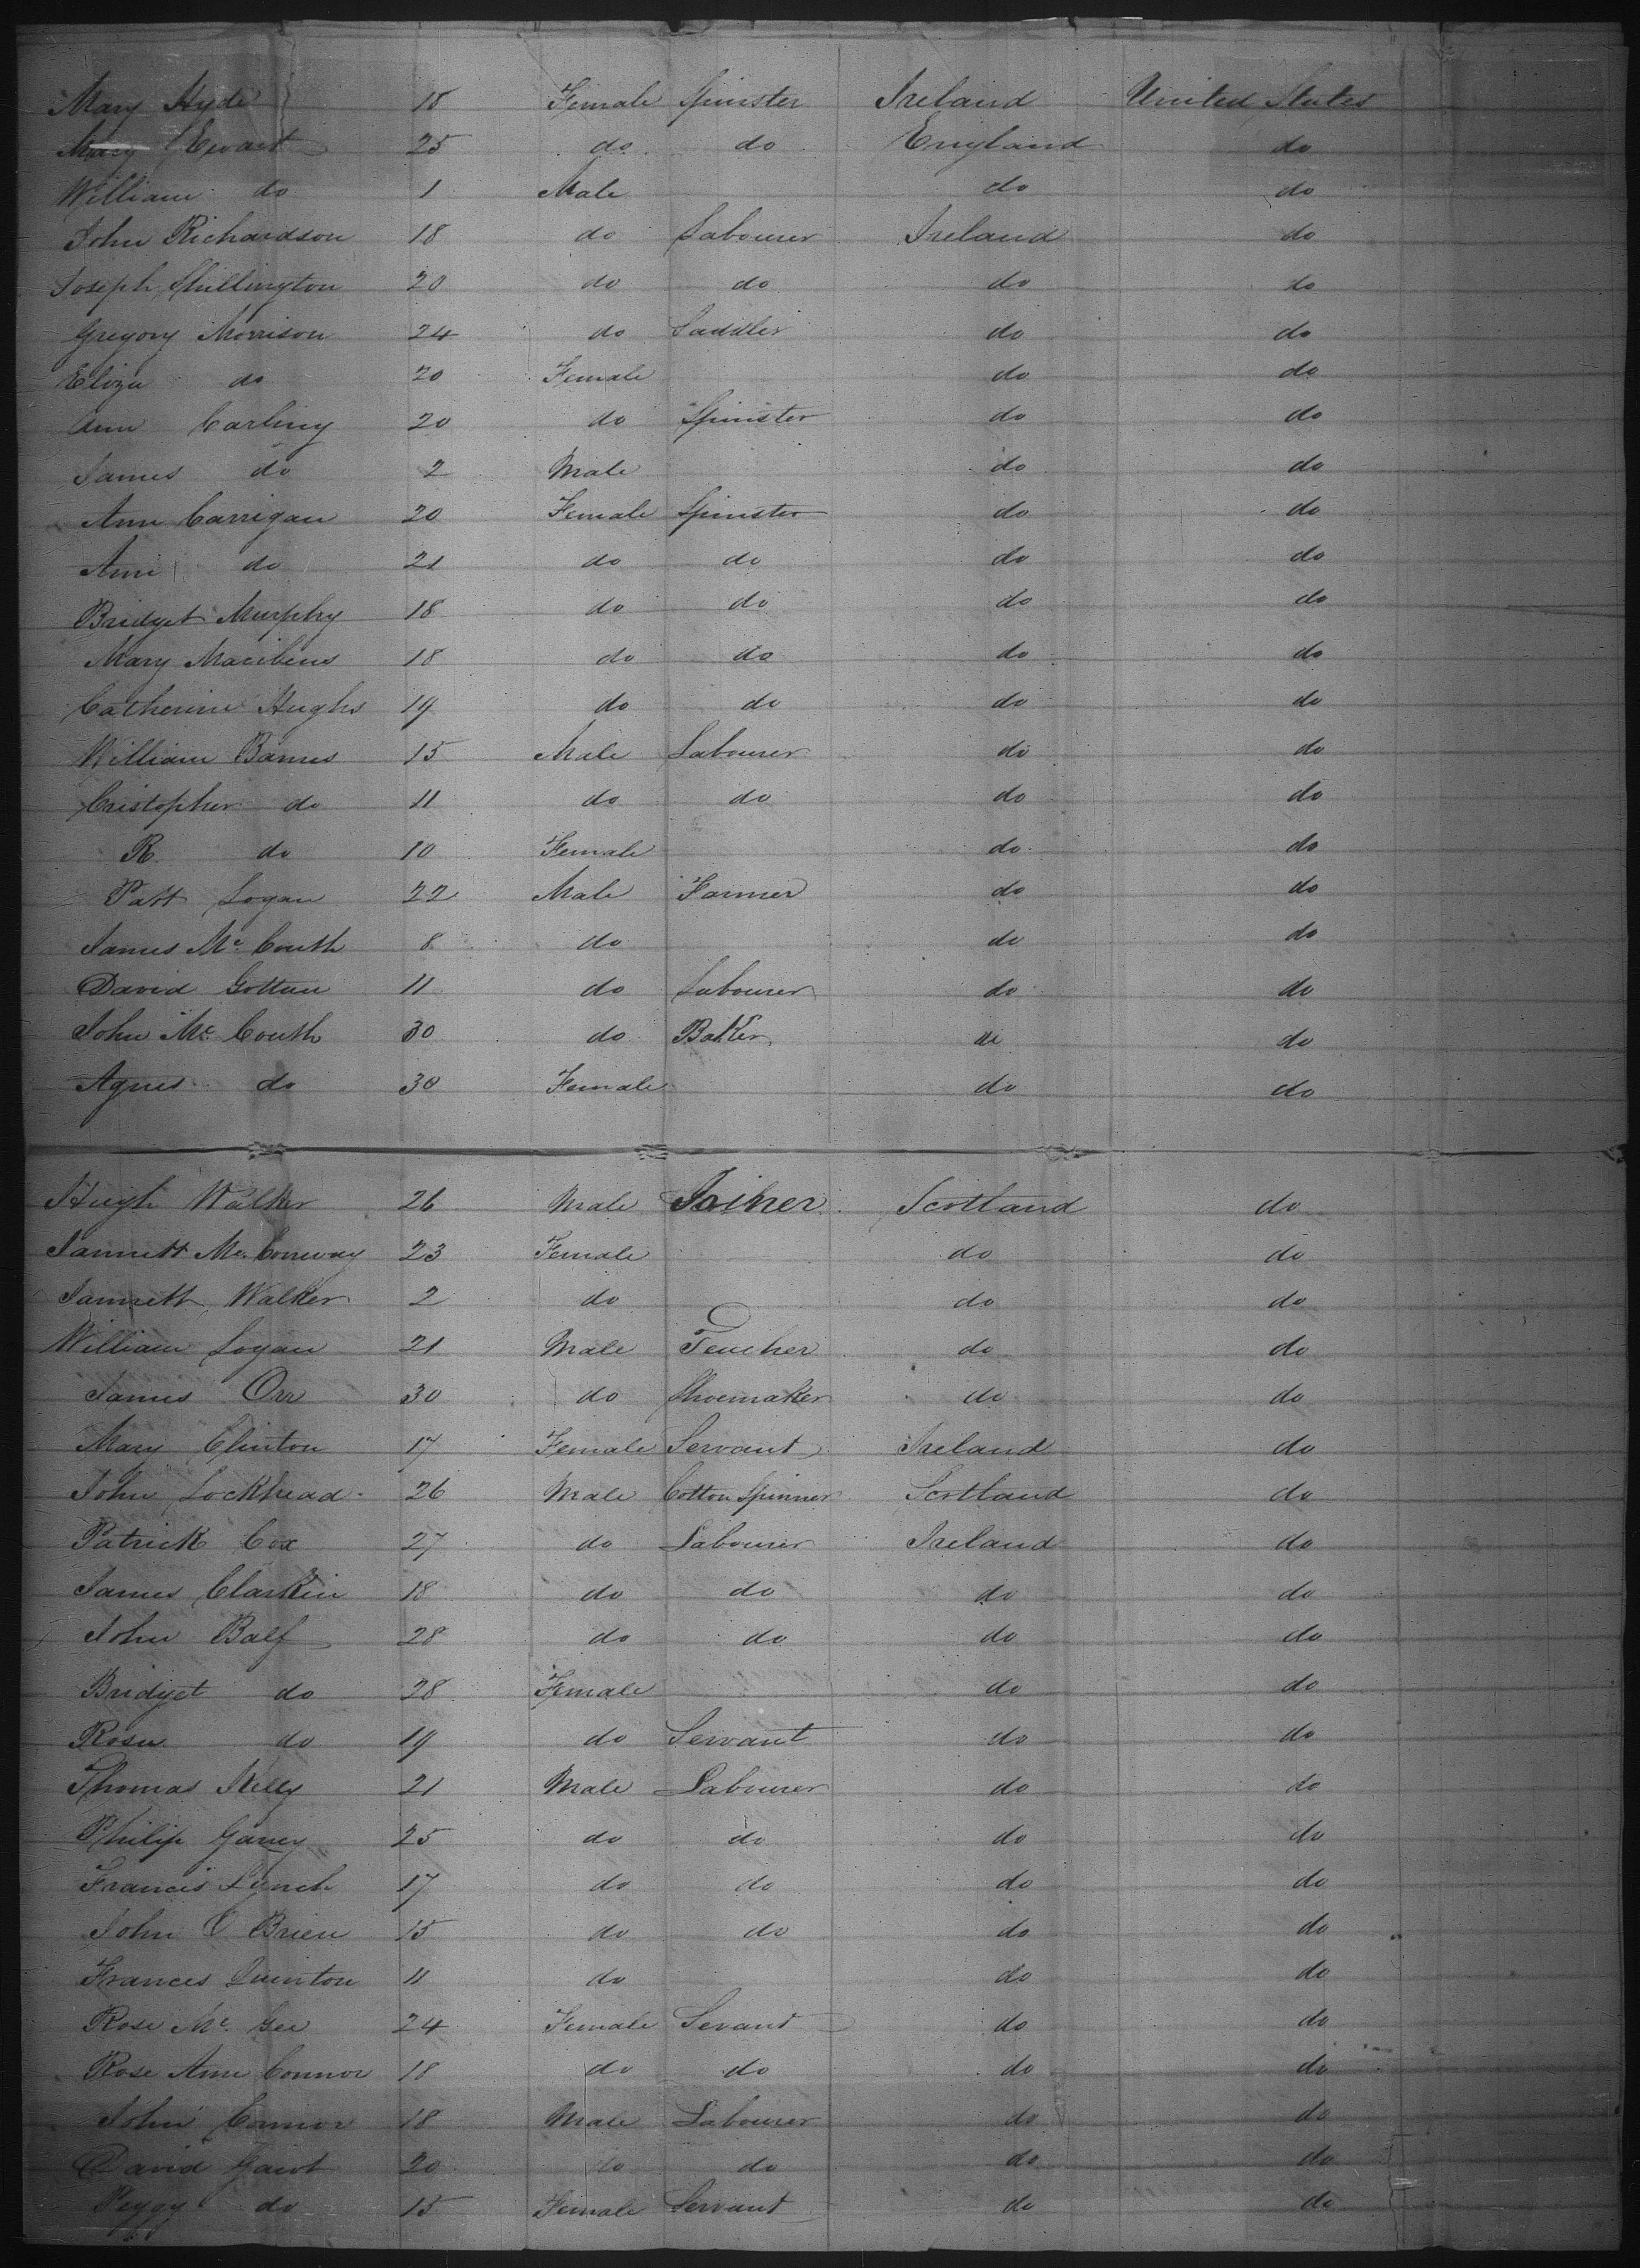 Mary Hyde 18 Female Spinster Ireland United States
Mary Ewart 25 do do England do
William do 1 Male do do
John Richardson 18 do Labourer Ireland do
Joseph Shillington 20 do do do do
Gregory Morrison 24 do Saddler do do
Eliza do 20 Female do do
Ann Carling 20 do Spinster do do
James do 2 Male do do
Ann Carrigan 20 Female Spinster do do
Ann do 21 do do do do
Bridget Murphy 18 do do do do
Mary 18 do do do do
Catherine Hughs 19 do do do do
William Barnes 15 Male Labourer do do
Cristopher do 11 do do do do
R. do 10 Female do do
Patt Logan 22 Male Farmer do do
James Mc Couth 8 do do do
David Gottau 11 do Labourer do do
John Mc Couth 30 do Baker do do
Agnes do 30 Female do do
Hugh Walker 26 Male Joiner Scotland do
Jannett Mc Conway 23 Female do do
Jannett Walker 2 do do do
William Logan 21 Male Teacher do do
James Orr 30 do Shoemaker do do
Mary Clinton 17 Female Servant Ireland do
John Lockhead 26 Male Cotton Spinner Scotland do
Patrick Cox 27 do Labourer Ireland do
James Clarkin 18 do do do do
John Balf 28 do do do do
Bridget do 28 Female do do
Rosa do 19 do Servant do do
Thomas Kelly 21 Male Labourer do do
Philip 25 do do do do
Francis Lynch 17 do do do do
John O Brien 15 do do do do
Frances Quinton 11 do do do
Rose Mc Gee 24 Female Sevant do do
Rose Ann Connor 18 do do do do
John Connor 18 Male Labourer do do
David Gawt 20 do do do do
Peggy do 15 Female Servant do do